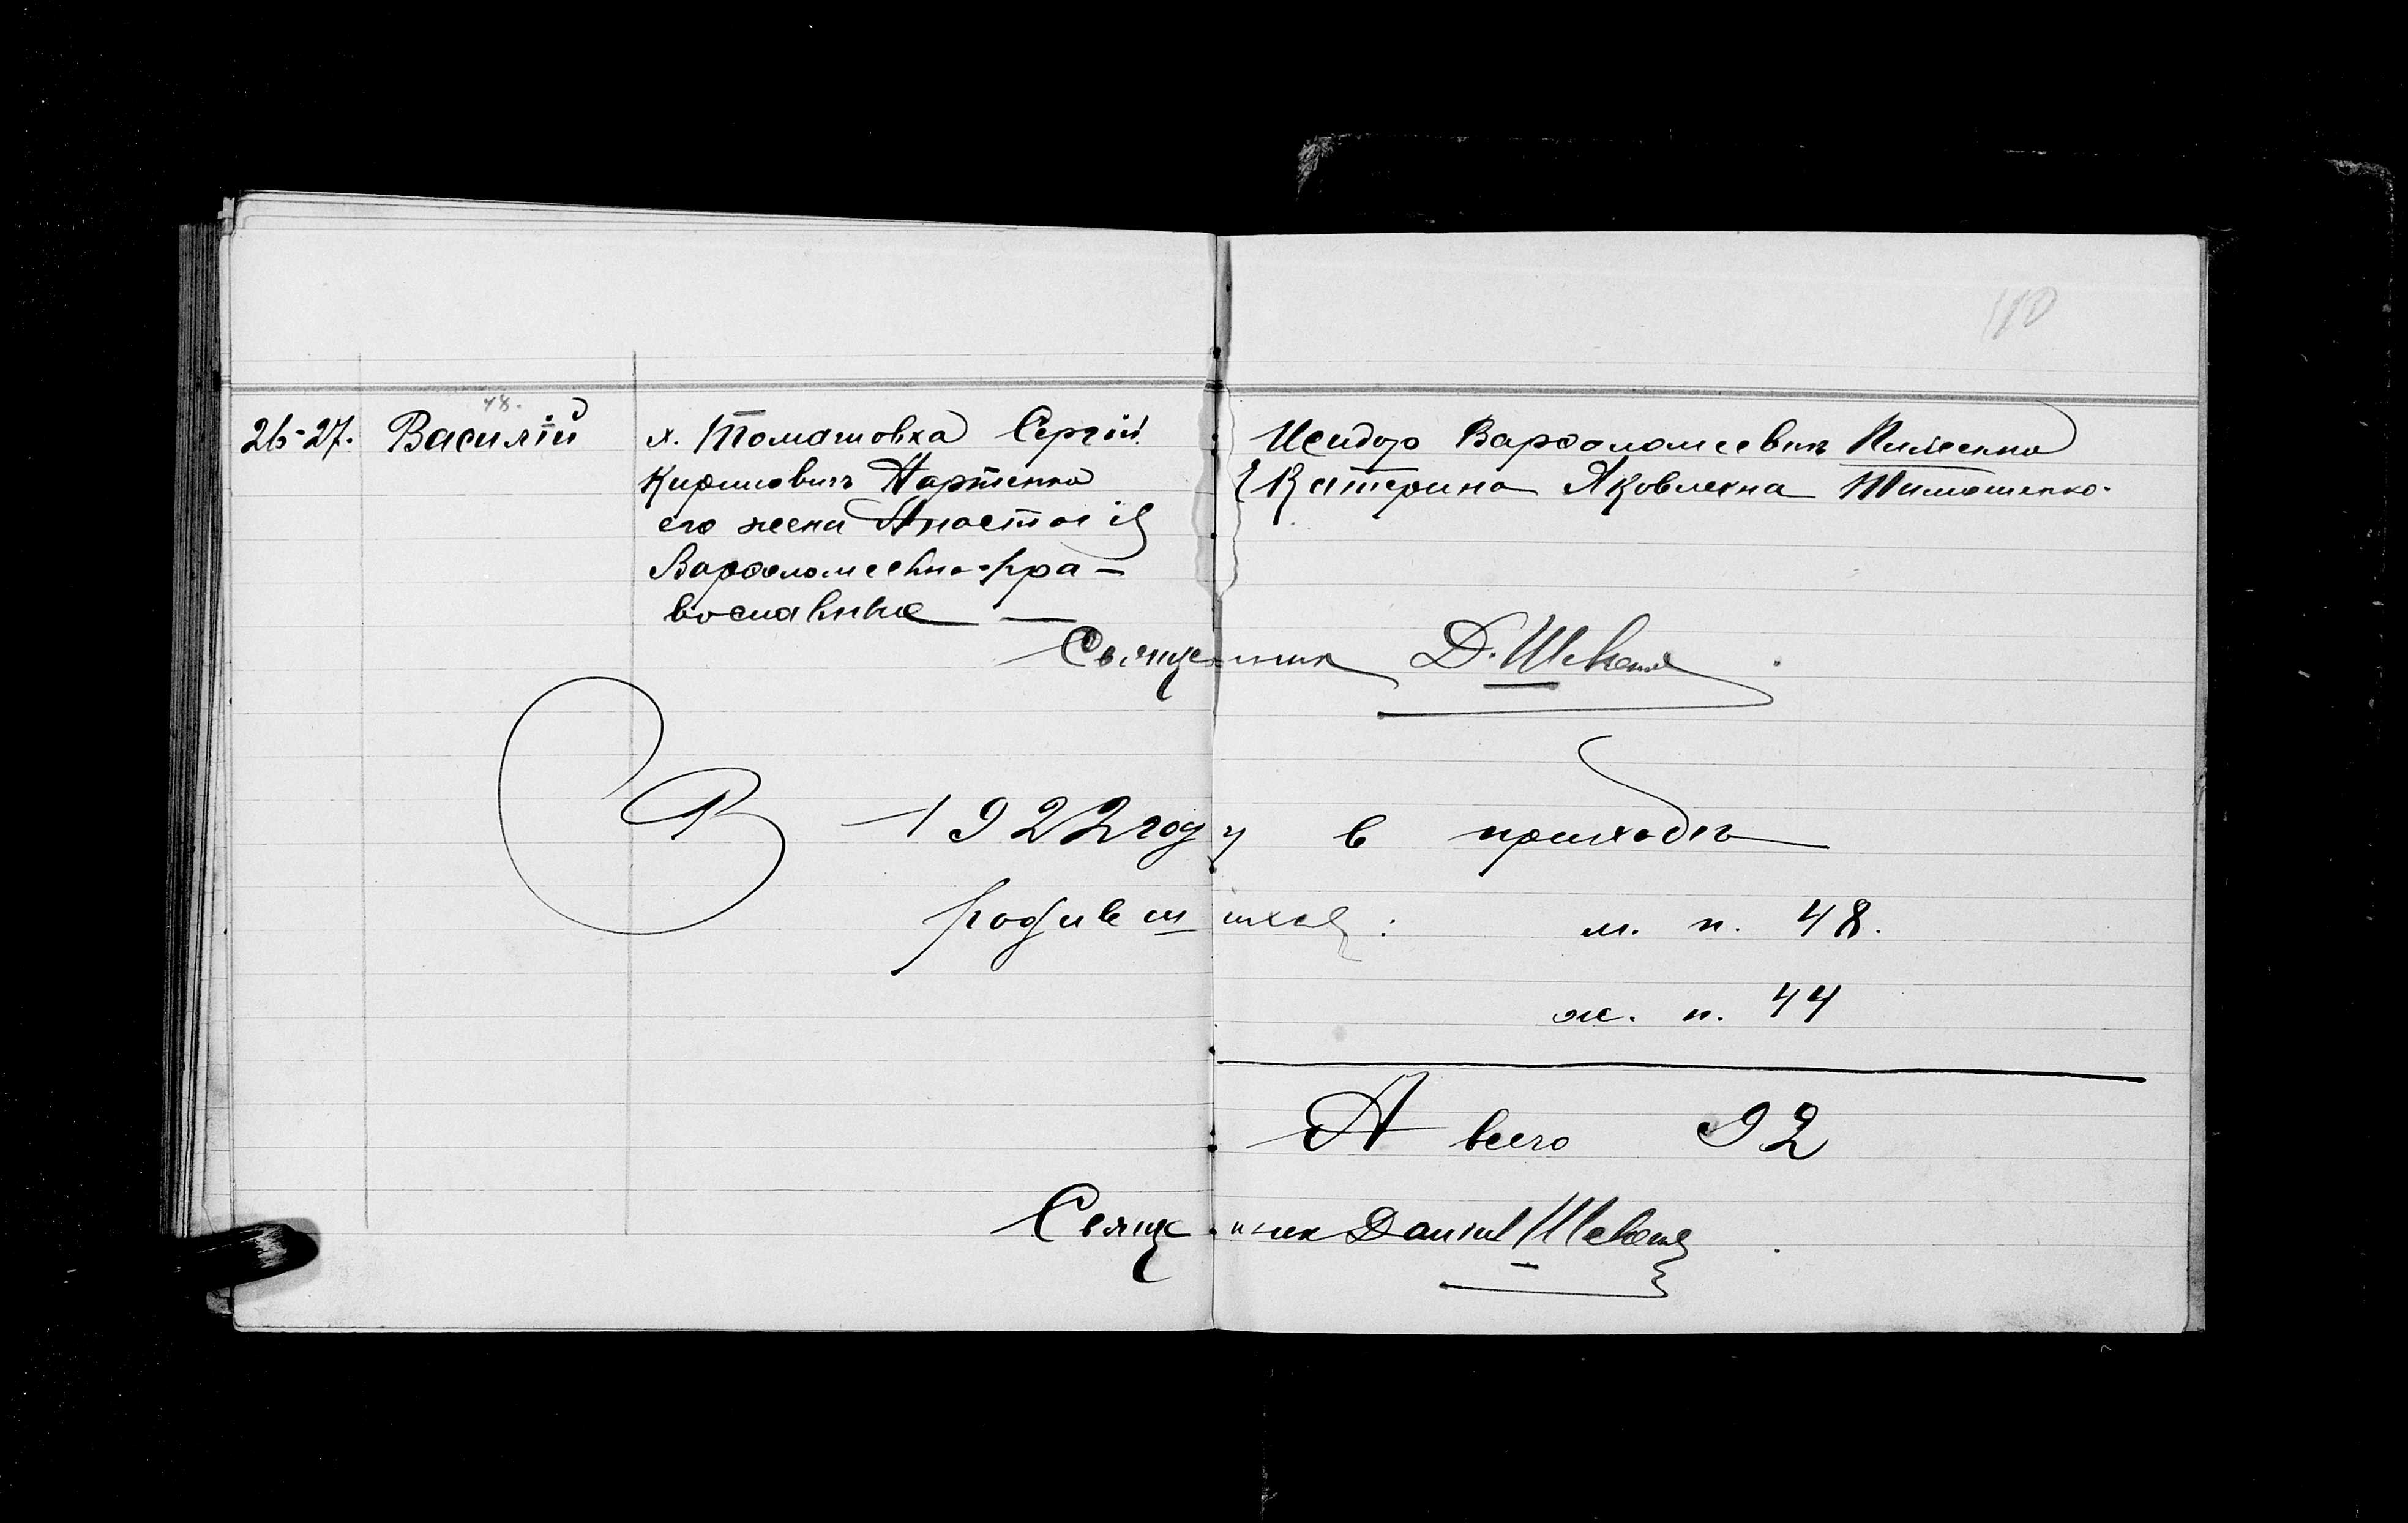 48.
26-27. Василій х. Томашовка Сергій
Кириловичъ Нартенко
его жена Анастасія
Варѳоломеевна-пра-
вославные
Исидор Варѳоломеевичъ
Екатерина Яковлевна Тимошенко.
Священник Д.
В 1922 году в приходѣ
родившихся: м. п. 48.
ж. п. 44
А всего 92
Священник